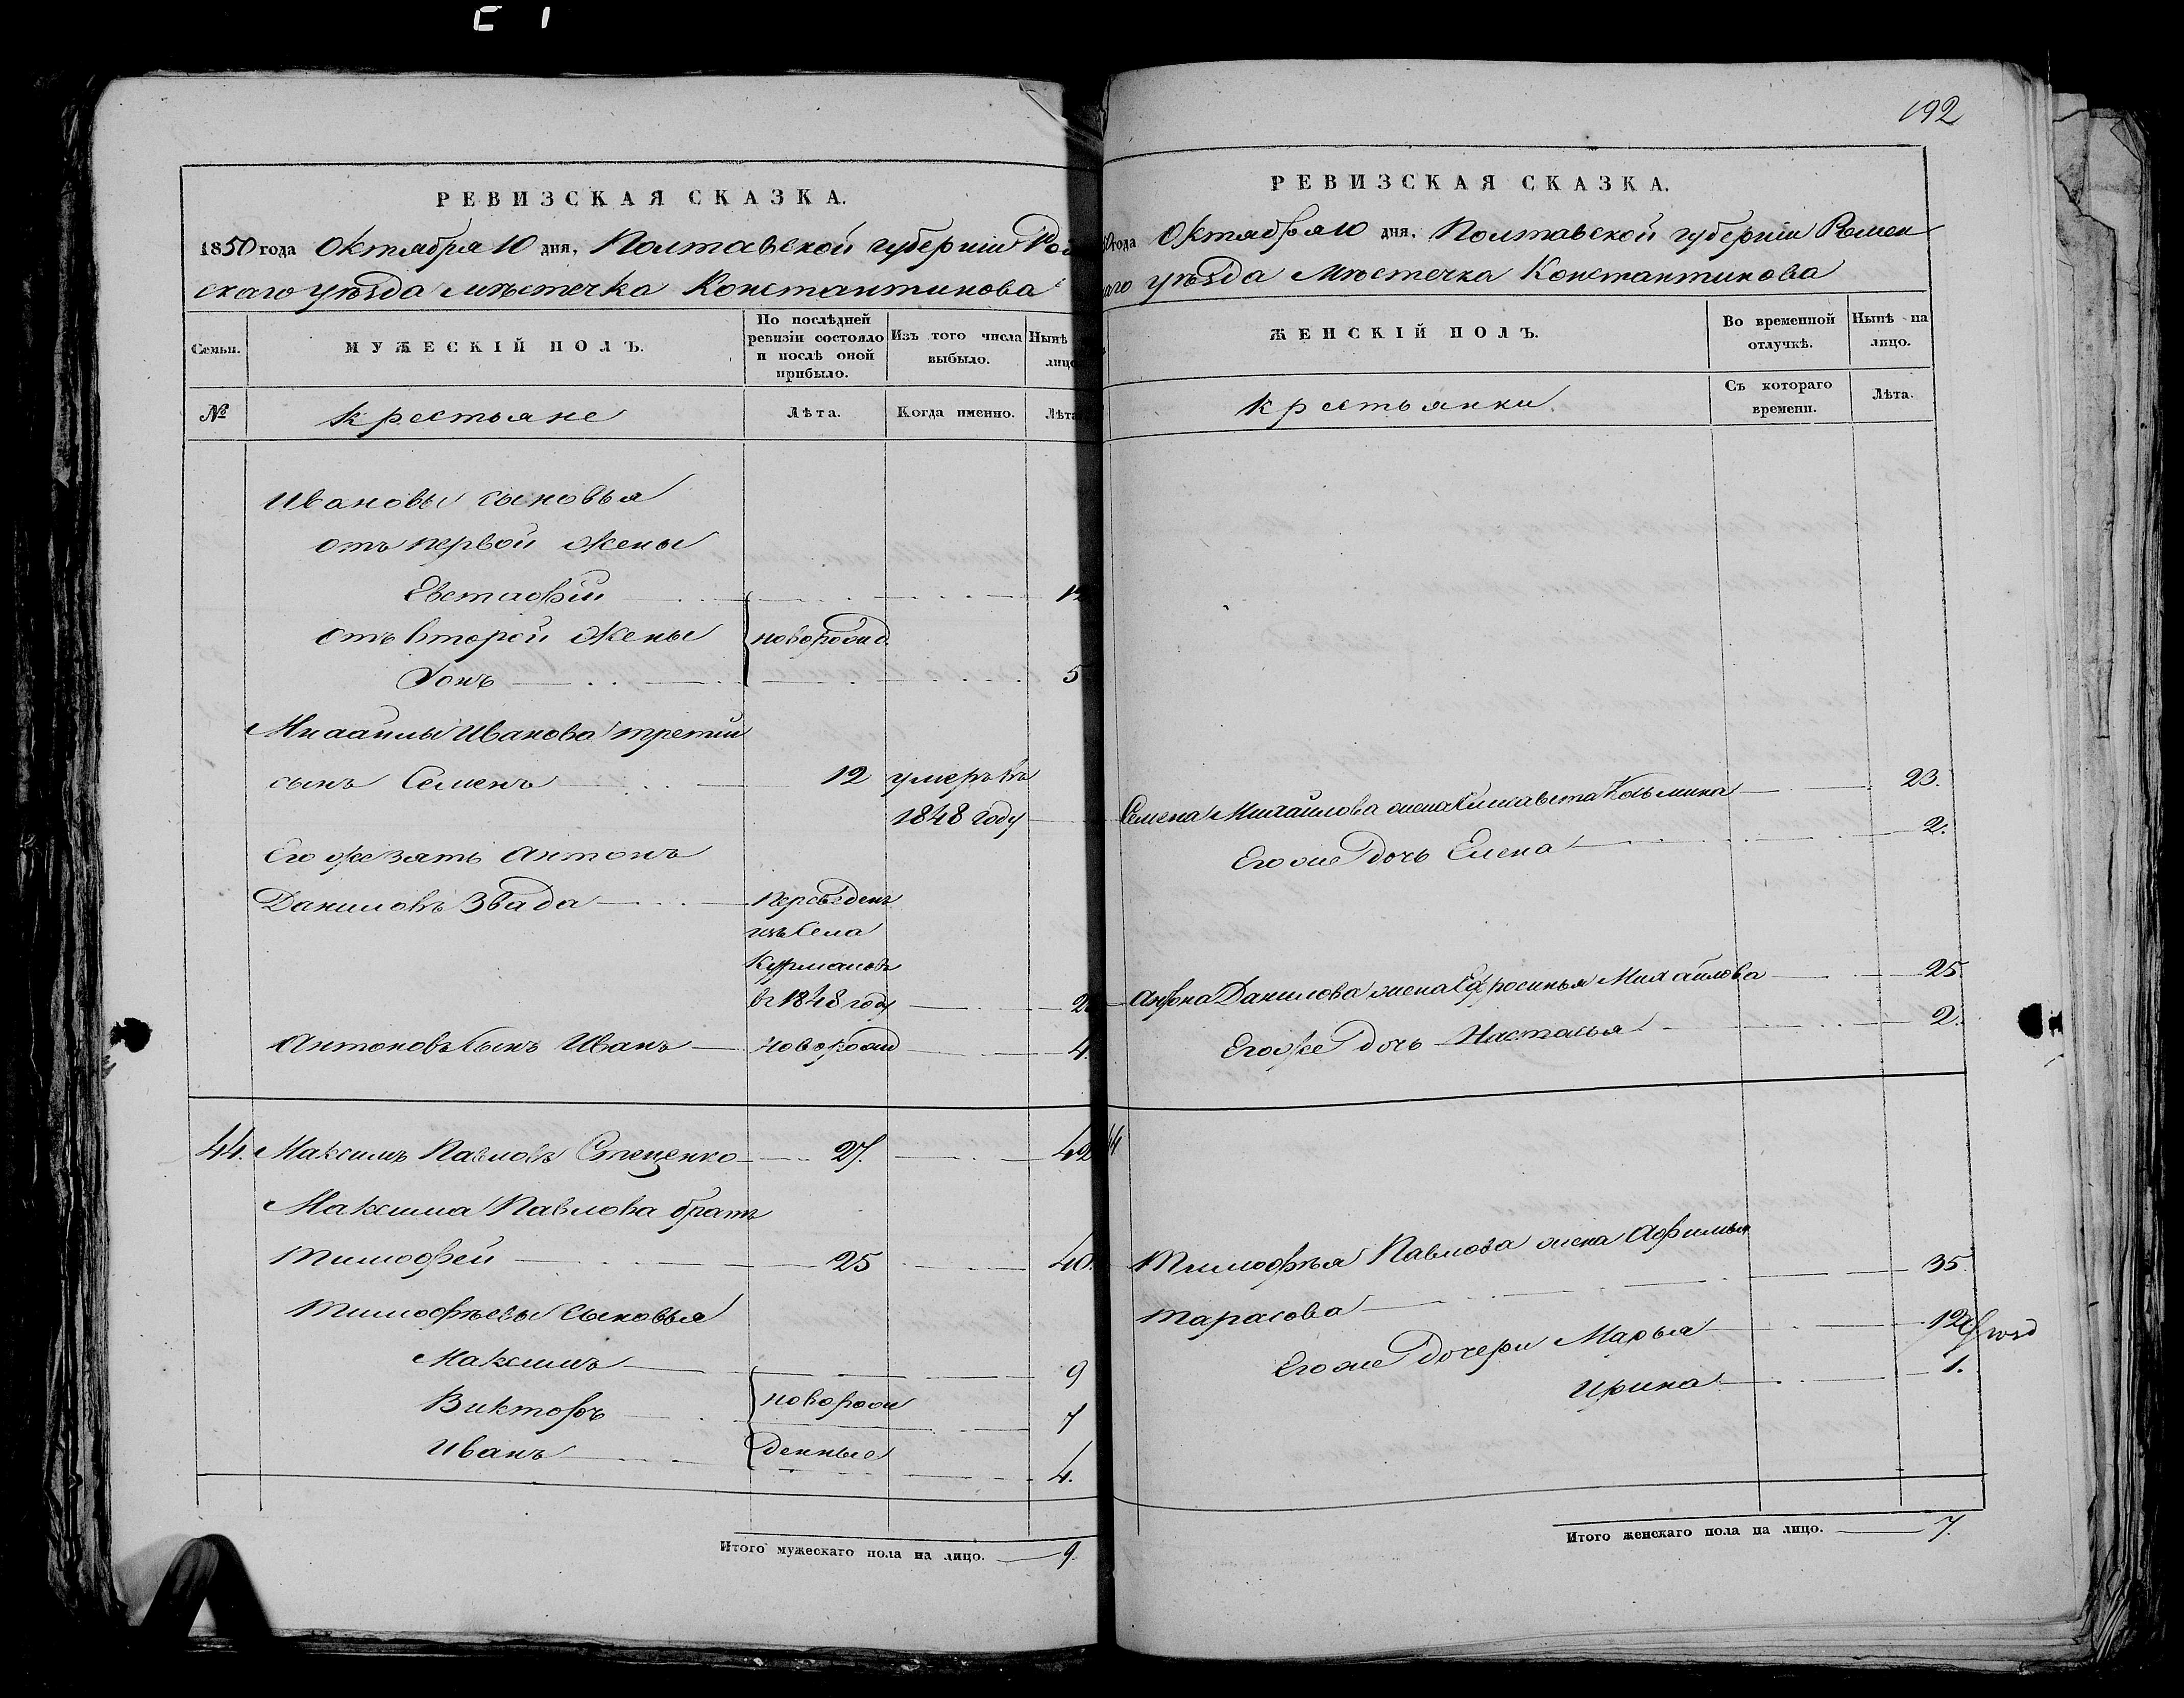 192
РЕВИЗСКАЯ СКАЗКА.
1850 года Октября 10 дня, Полтавской губернiи Ро
скаго уѣзда мѣстечка Константинова
Семьи.
МУЖЕСКІЙ ПОЛЪ.
По послѣдней ревизіи состояло и послѣ оной прибыло.
Изъ того числа выбыло.
Нынѣ лицо
№
крестьяне
Лѣта.
Когда именно.
Лѣта
Ивановы сыновья
отъ первой жены
Евстафiй 12
отъ второй жены новорожд.
Iонъ 5
Михайлы Иванова третiй
сынъ Семенъ 12 умеръ въ
1848 году
Его же зять Антонъ
Даниловъ Звада Переведенъ
изъ села
Курмановъ
въ 1848 году
Антоновъ сынъ Иванъ новорожд 4.
44. Максимъ Павловъ Стеценко 27. 42
Максима Павлова братъ
Тимофей 25 40.
Тимофѣевы сыновья
Максимъ 9
Викторъ новорож 7
Иванъ денные 4.
Итого мужескаго пола на лицо. 9.
РЕВИЗСКАЯ СКАЗКА.
года Октября 10 дня, Полтавской губернiи Ромен
аго уѣзда Мѣстечка Константинова
ЖЕНСКІЙ ПОЛЪ.
Во временной отлучкѣ.
Нынѣ на лицо.
крестьянки.
Съ котораго времени.
Лѣта.
Семена Михайлова жена Елисавета Козьмина 23.
Его же дочь Елена 2.
Антона Данилова жена Ефросинья Михайлова 25.
Его же дочь Настасья 2.
44
Тимофѣя Павлова жена Афимья
Тарасова 35.
Его же дочери Марья 12
Ирина 1.
Итого женскаго пола на лицо. 7.